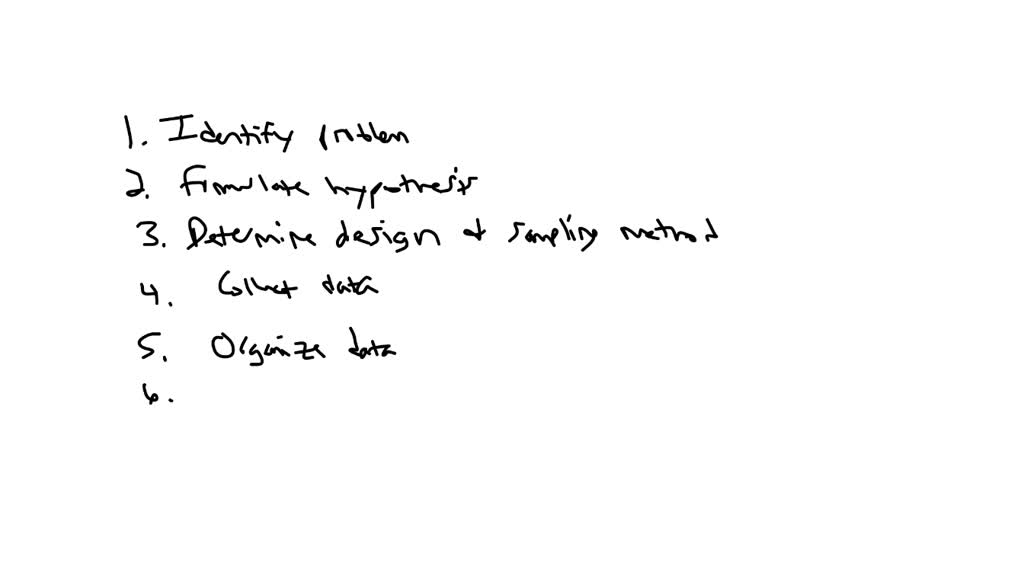 1. Identify problem
2. Formulate hypothesis
3. Determine design & sampling method
4. Collect data
5. Organize data
6.